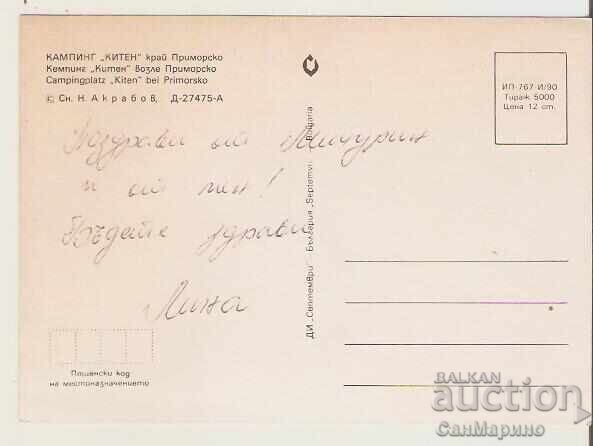 КАМПИНГ „КИТЕН“ край Приморско
Кемпинг „Китен“ возле Приморско
Campingplatz „Kiten“ bei Primorsko
© Сн. Н. Акрабов, Д-27475-А
ИП-767-И/90
Тираж 5000
Цена 12 ст.
Поздрави от Мичурин
и от мен!
Бъдете здрави
Лина
ДИ „Септември“ — България „Septemvri“ — Bulgaria
Пощенски код
на местоназначението
BALKAN
auction
СанМарино